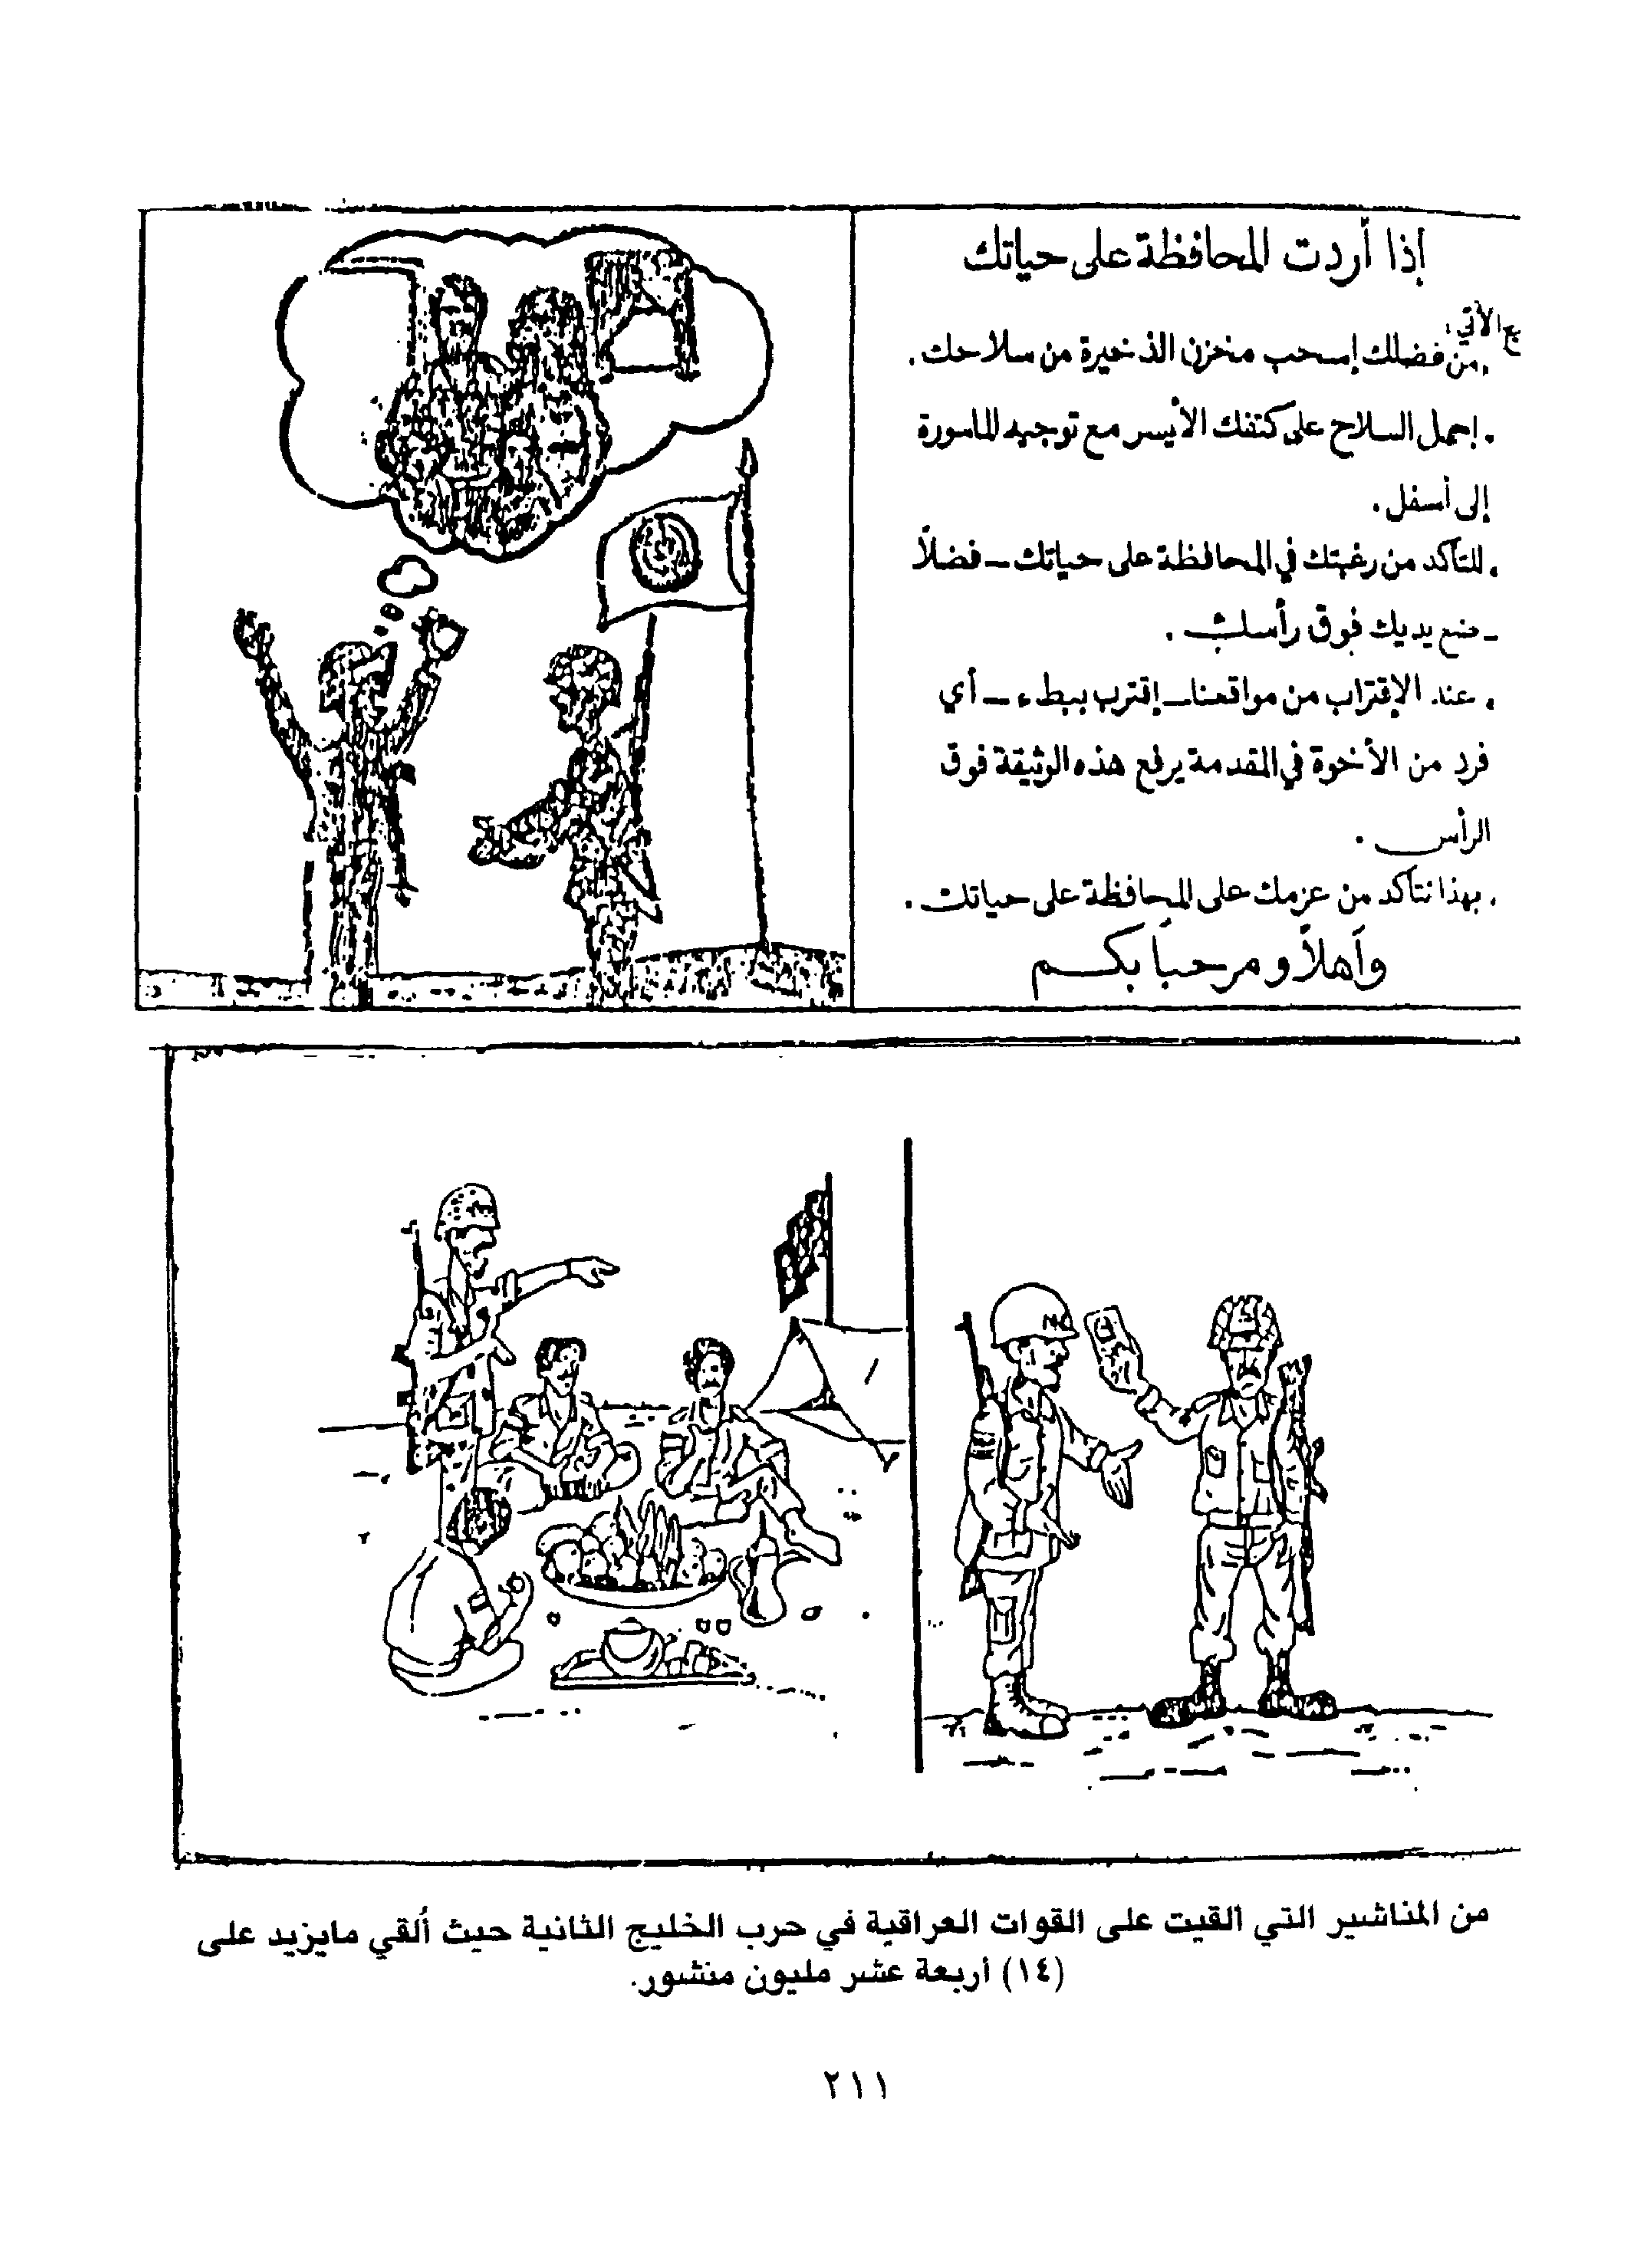 إذا أردت المحافظة على حياتك
الآتي:
من فضلك إسحب مخزن الذخيرة من سلاحك.
. إحمل السلاح على كتفك الأيسر مع توجيه الماسورة
إلى أسفل.
. للتأكد من رغبتك في المحافظة على حياتك – فضلاً
– ضع يديك فوق رأسك.
. عند الإقتراب من مواقعنا – إقترب ببطء – أي
فرد من الأخوة في المقدمة يرفع هذه الوثيقة فوق
الرأس.
. بهذا نتأكد من عزمك على المحافظة على حياتك.
وأهلاً ومرحباً بكم
من المناشير التي القيت على القوات العراقية في حرب الخليج الثانية حيث ألقي مايزيد على
(١٤) اربعة عشر مليون منشور.
٢١١